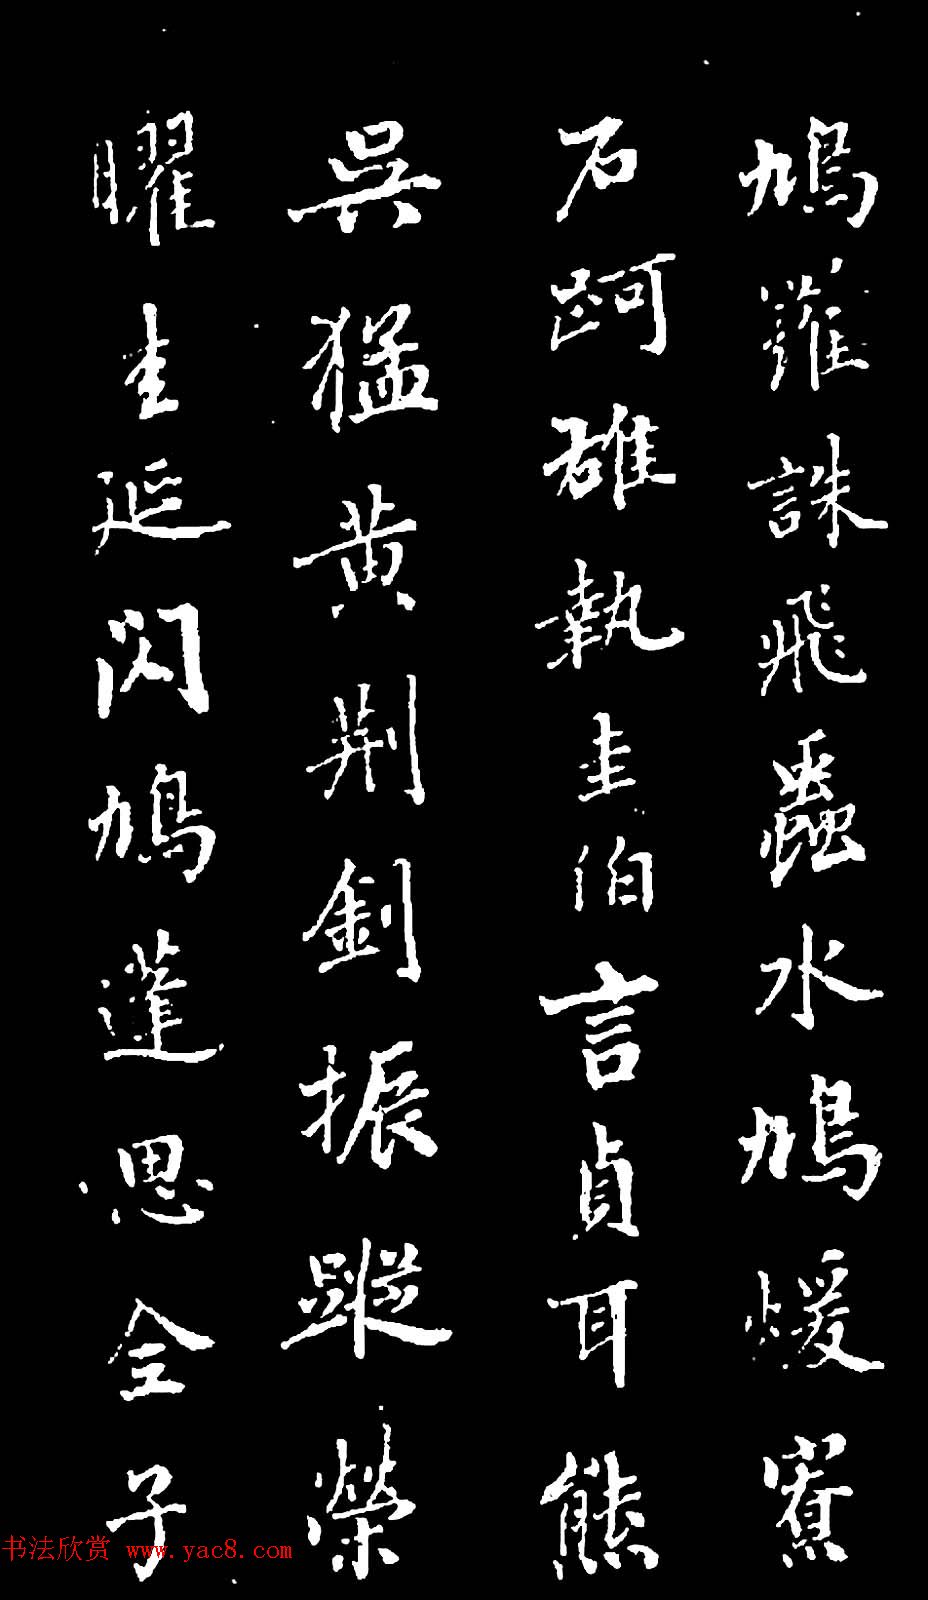 鳩羅誅飛蟲水鳩煖寮
石跒雄執圭伯言貞耳熊
吳猛黃荆釗振蹤榮
曜生延閃鳩蓮思全子
书法欣赏 www.yac8.com